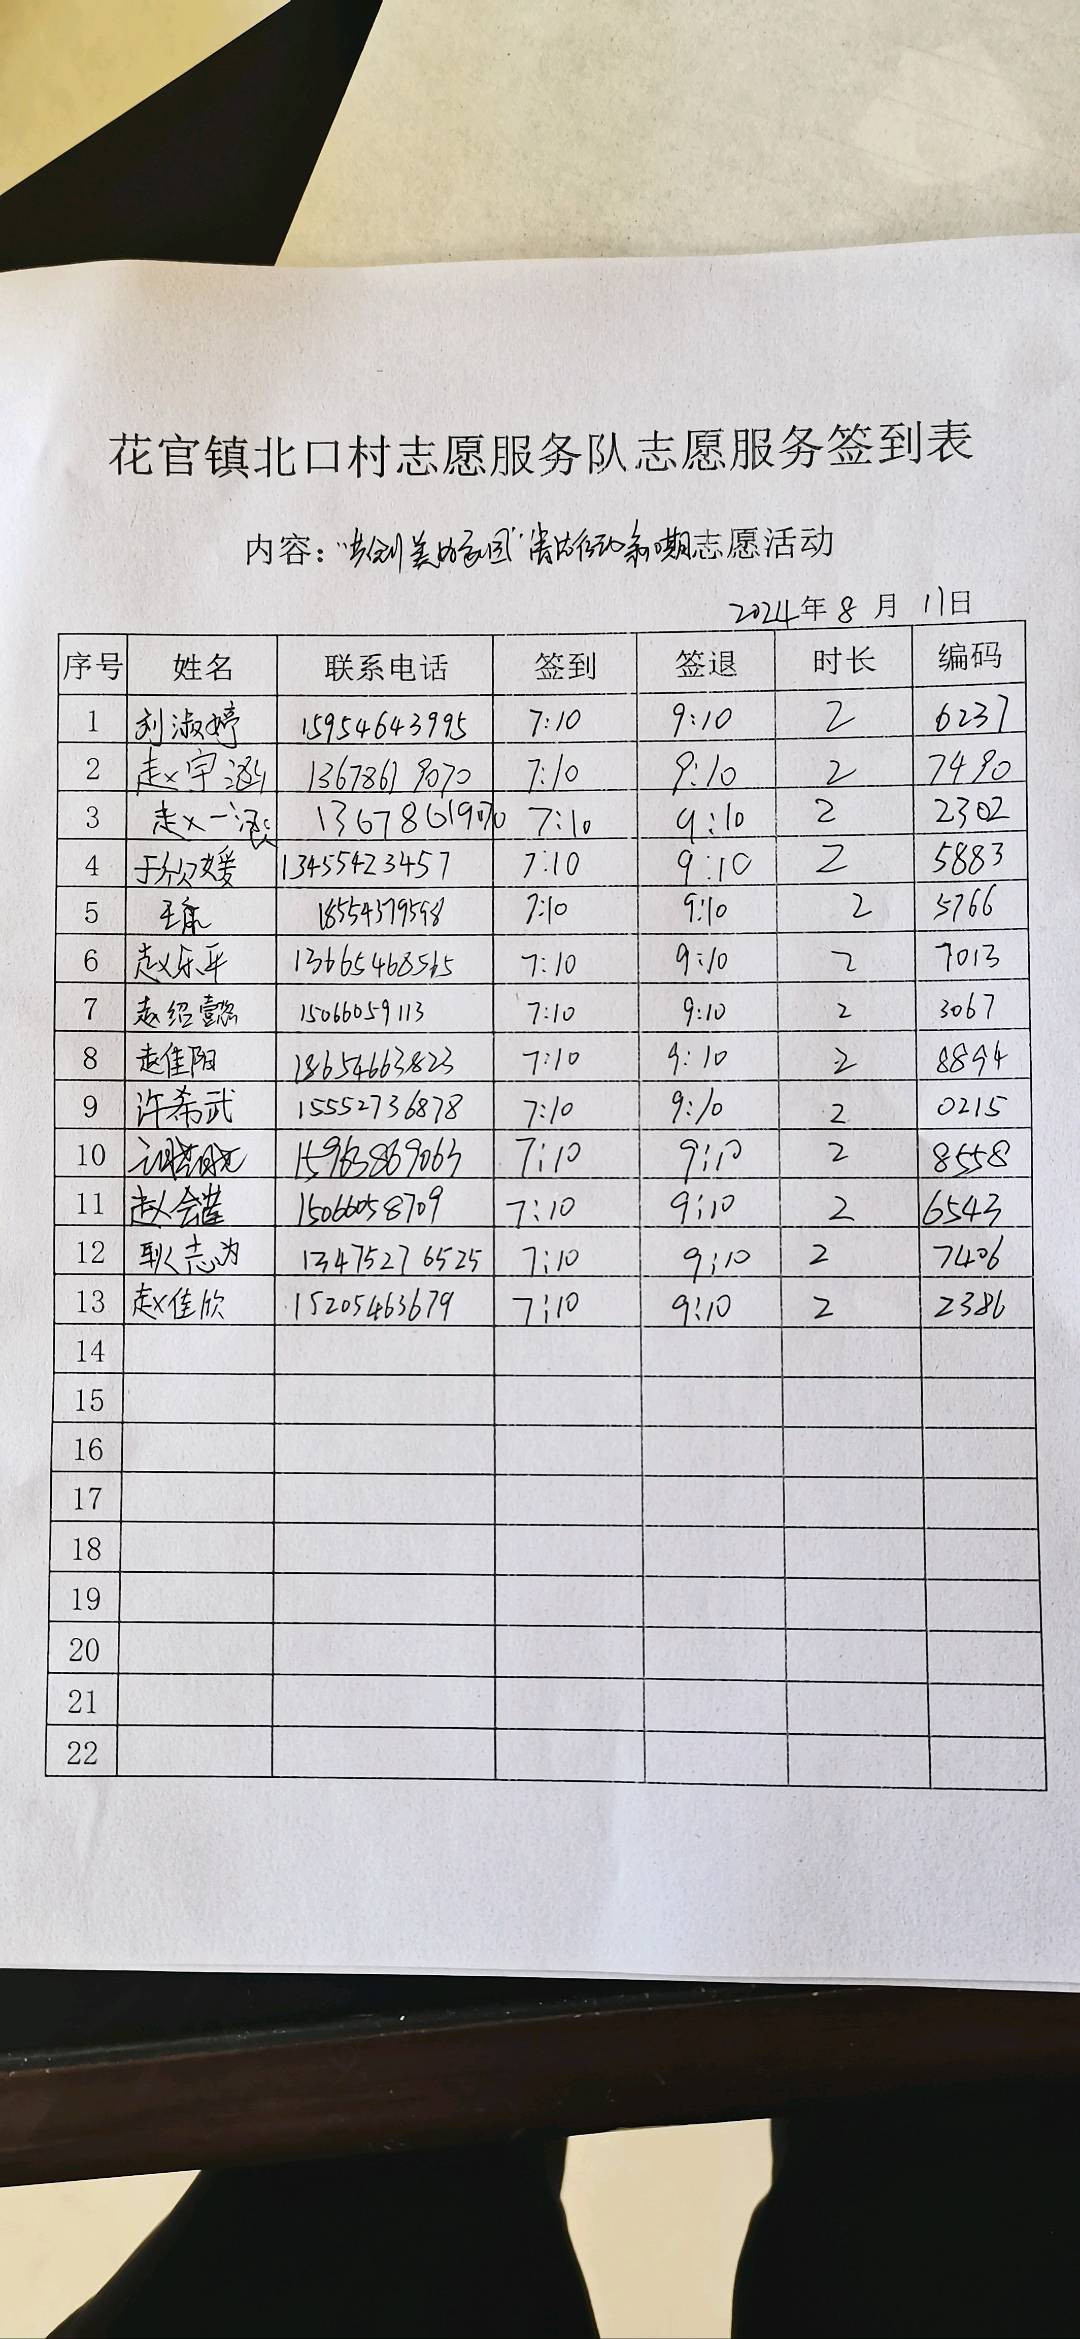 花官镇北口村志愿服务队志愿服务签到表
内容：“共创美好家园”清洁行动 期志愿活动
2024年8月11日
序号 姓名 联系电话 签到 签退 时长 编码
1 刘淑婷 15954643995 7:10 9:10 2 6237
2 赵宇涵 13678619070 7:10 9:10 2 7490
3 赵一涵 13678619070 7:10 9:10 2 2302
4 于欣媛 13455423457 7:10 9:10 2 5883
5 18554379598 7:10 9:10 2 5766
6 赵乐平 13665468565 7:10 9:10 2 7013
7 赵绍懿 15066059113 7:10 9:10 2 3067
8 赵佳阳 18654663823 7:10 9:10 2 8894
9 许希武 15552736878 7:10 9:10 2 0215
10 15963869063 7:10 9:10 2 8558
11 15066058709 7:10 9:10 2 6543
12 耿志为 13475276525 7:10 9:10 2 7406
13 赵佳欣 15205463679 7:10 9:10 2 2386
14
15
16
17
18
19
20
21
22